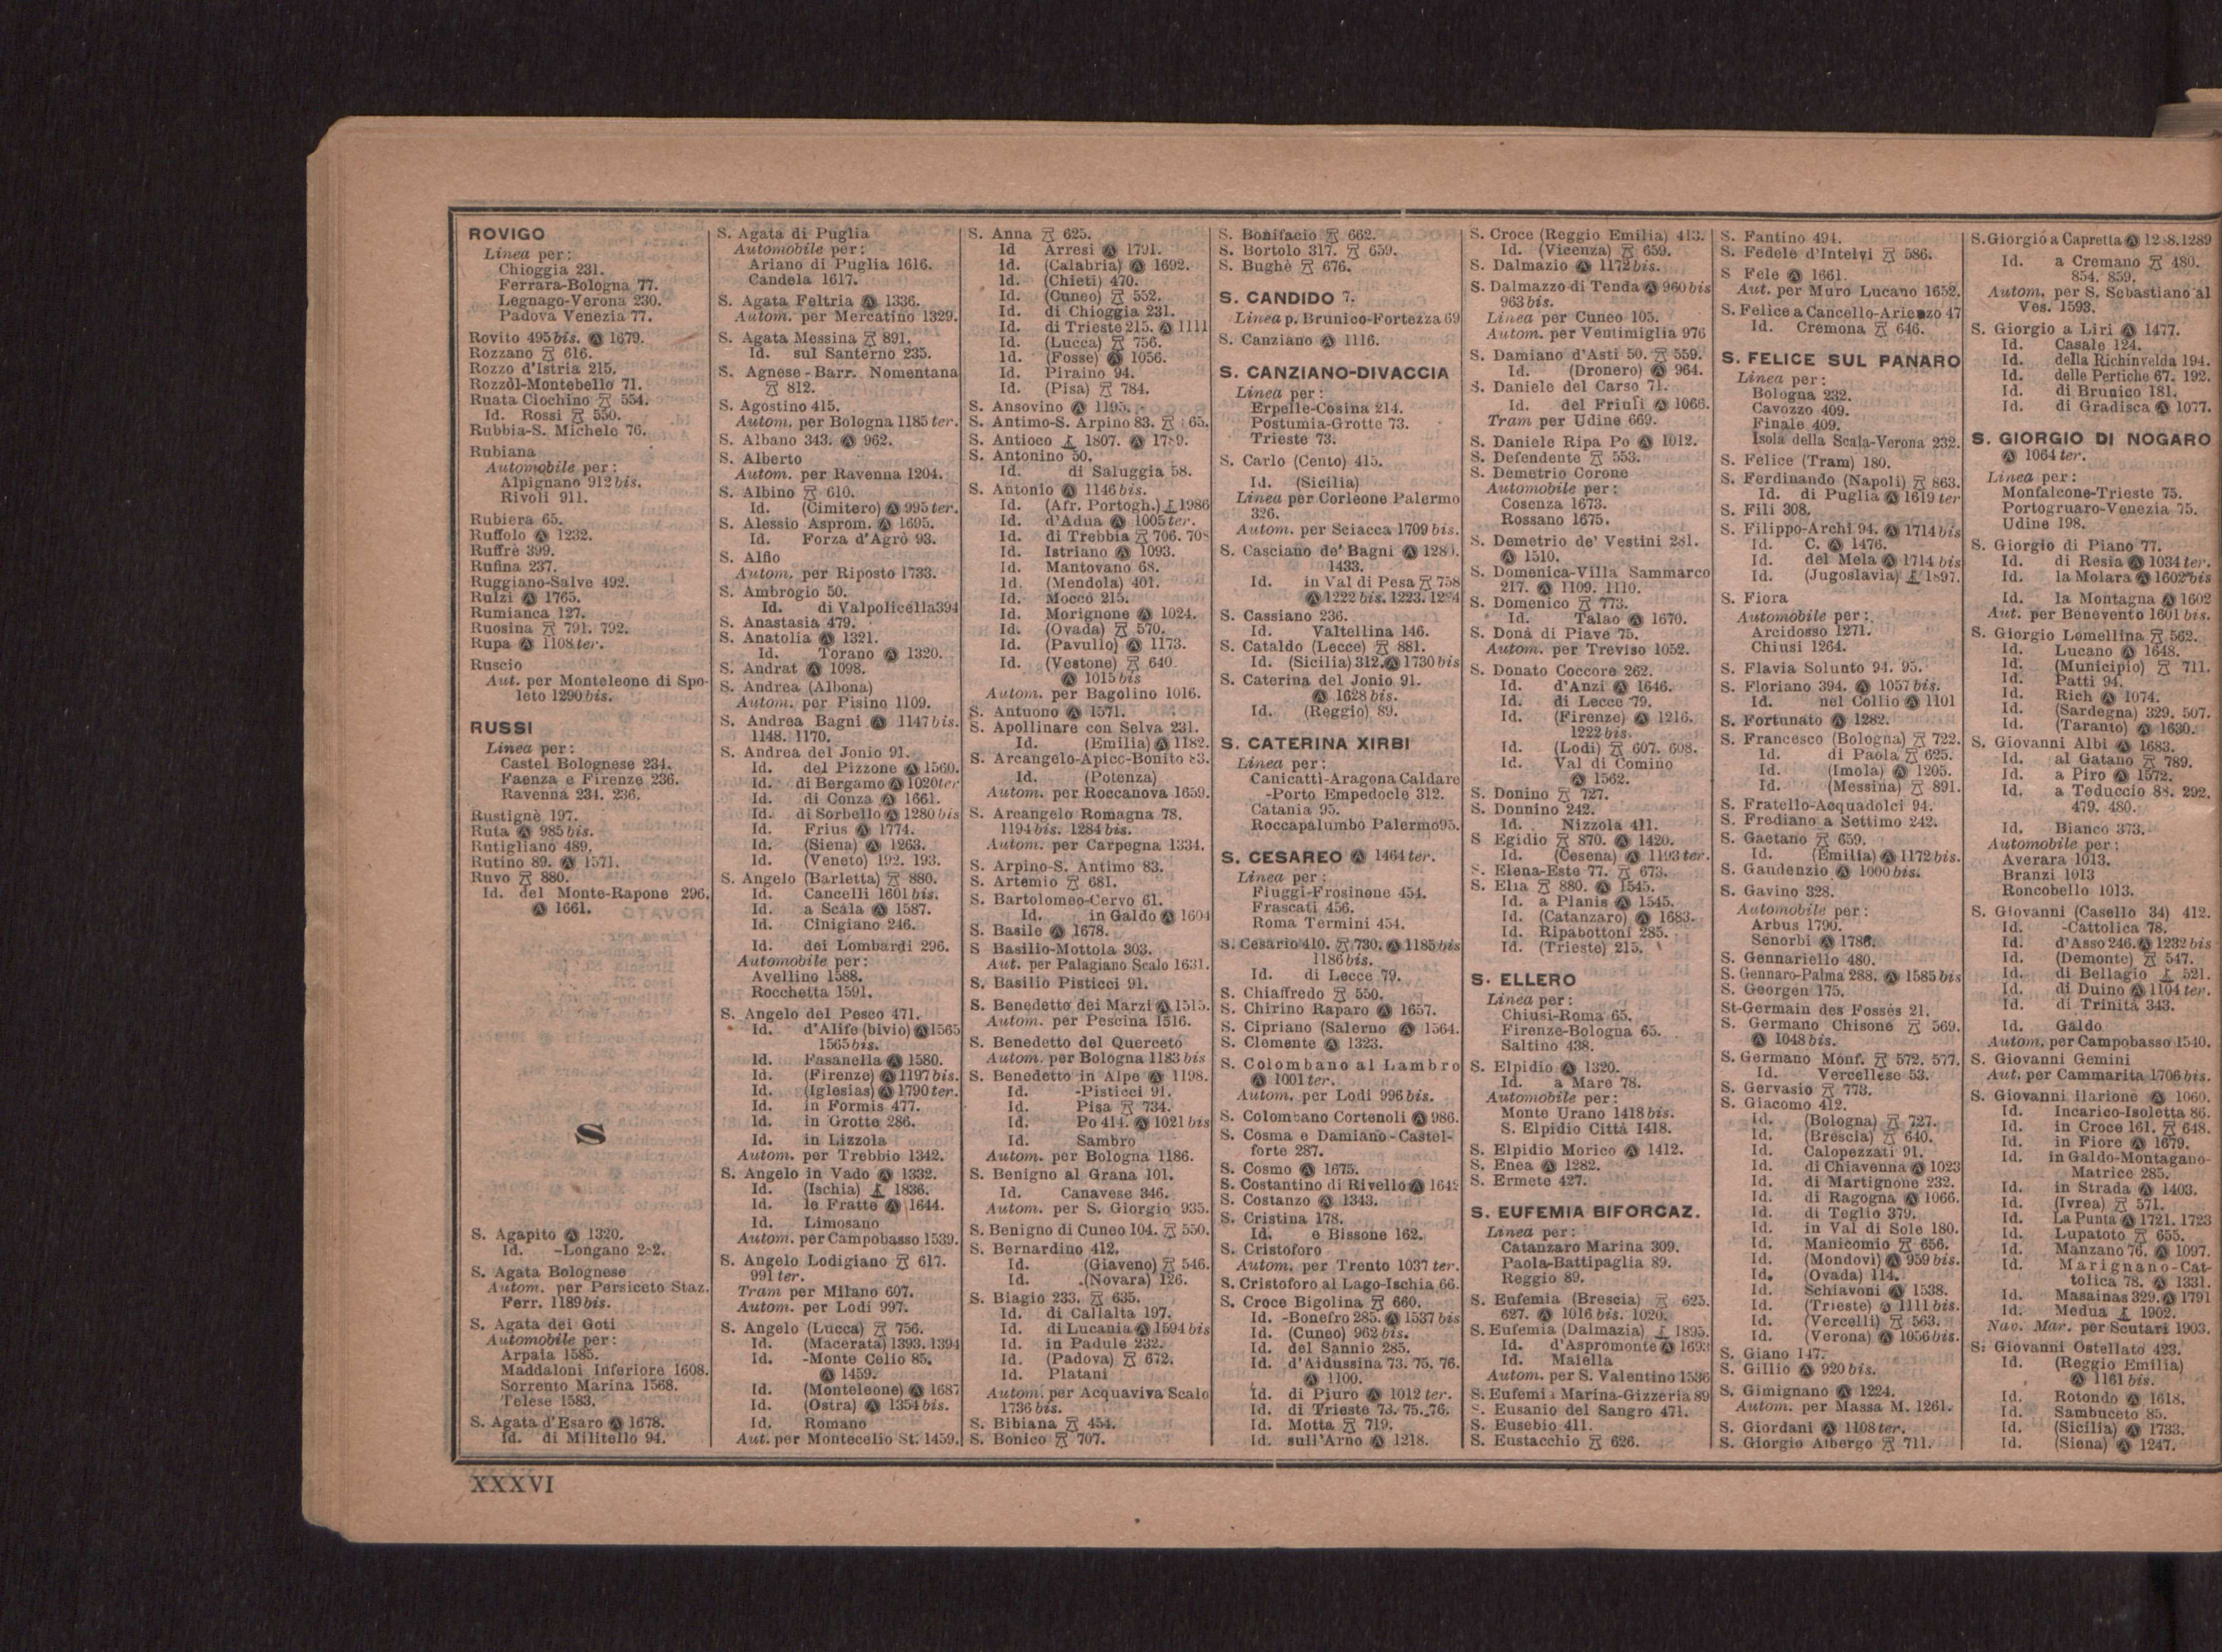 ROVIGO
Linea per:
Chioggia 231.
Ferrara-Bologna 77.
Legnago-Verona 230.
Padova Venezia 77.
Rovito 495 bis. Ⓐ 1679.
Rozzano 616.
Rozzo d'Istria 215.
Rozzòl-Montebello 71.
Ruata Ciochino 554.
Id. Rossi 550.
Rubbia-S. Michele 76.
Rubiana
Automobile per:
Alpignano 912 bis.
Rivoli 911.
Rubiera 65.
Ruffolo Ⓐ 1232.
Ruffrè 399.
Rufina 237.
Ruggiano-Salve 492.
Rulzi Ⓐ 1765.
Rumianca 127.
Ruosina 791. 792.
Rupa Ⓐ 1108 ter.
Ruscio
Aut. per Monteleone di Spo-
leto 1290 bis.
RUSSI
Linea per:
Castel Bolognese 234.
Faenza e Firenze 236.
Ravenna 234. 236.
Rustignè 197.
Ruta Ⓐ 985 bis.
Rutigliano 489.
Rutino 89. Ⓐ 1571.
Ruvo 880.
Id. del Monte-Rapone 296.
Ⓐ 1661.
S
S. Agapito Ⓐ 1320.
Id. -Longano
S. Agata Bolognese
Autom. per Persiceto Staz.
Ferr. 1189 bis.
S. Agata dei Goti
Automobile per:
Arpaia 1585.
Maddaloni Inferiore 1608.
Sorrento Marina 1568.
Telese 1583.
S. Agata d'Esaro Ⓐ 1678.
Id. di Militello 94.
S. Agata di Puglia
Automobile per:
Ariano di Puglia 1616.
Candela 1617.
S. Agata Feltria Ⓐ 1336.
Autom. per Mercatino 1329.
S. Agata Messina 891.
Id. sul Santerno 235.
S. Agnese - Barr. Nomentana
812.
S. Agostino 415.
Autom. per Bologna 1185 ter.
S. Albano 343. Ⓐ 962.
S. Alberto
Autom. per Ravenna 1204.
S. Albino 610.
Id. (Cimitero) Ⓐ 995 ter.
S. Alessio Asprom. Ⓐ 1695.
Id. Forza d'Agrò 93.
S. Alfio
Autom. per Riposto 1733.
S. Ambrogio 50.
Id. di Valpolicella 394
S. Anastasia 479.
S. Anatolia Ⓐ 1321.
Id. Torano Ⓐ 1320.
S. Andrat Ⓐ 1098.
S. Andrea (Albona)
Autom. per Pisino 1109.
S. Andrea Bagni Ⓐ 1147 bis.
1148. 1170.
S. Andrea del Jonio 91.
Id. del Pizzone Ⓐ 1560.
Id. di Bergamo Ⓐ 1020 ter
Id. di Conza Ⓐ 1661.
Id. di Sorbello Ⓐ 1280 bis
Id. Frius Ⓐ 1774.
Id. (Siena) Ⓐ 1263.
Id. (Veneto) 192. 193.
S. Angelo (Barletta) 880.
Id. Cancelli 1601 bis.
Id. a Scala Ⓐ 1587.
Id. Cinigiano 246.
Id. dei Lombardi 296.
Automobile per:
Avellino 1588.
Rocchetta 1591.
S. Angelo del Pesco 471.
Id. d'Alife (bivio) Ⓐ 1565
1565 bis.
Id. Fasanella Ⓐ 1580.
Id. (Firenze) Ⓐ 1197 bis.
Id. (Iglesias) Ⓐ 1790 ter.
Id. in Formis 477.
Id. in Grotte 286.
Id. in Lizzola
Autom. per Trebbio 1342.
S. Angelo in Vado Ⓐ 1332.
Id. (Ischia) 1836.
Id. le Fratte Ⓐ 1644.
Id. Limosano
Autom. per Campobasso 1539.
S. Angelo Lodigiano 617.
991 ter.
Tram per Milano 607.
Autom. per Lodi 997.
S. Angelo (Lucca) 756.
Id. (Macerata) 1393. 1394
Id. -Monte Celio 85.
Ⓐ 1459.
Id. (Monteleone) Ⓐ 1687
Id. (Ostra) Ⓐ 1354 bis.
Id. Romano
Aut. per Montecelio St. 1459.
S. Anna 625.
Id Arresi Ⓐ 1791.
Id. (Calabria) Ⓐ 1692.
Id. (Chieti) 470.
Id. (Cuneo) 552.
Id. di Chioggia 231.
Id. di Trieste 215. Ⓐ 1111
Id. (Lucca) 756.
Id. (Fosse) Ⓐ 1056.
Id. Piraino 94.
Id. (Pisa) 784.
S. Ansovino Ⓐ 1195.
S. Antimo-S. Arpino 83.
S. Antioco 1807. Ⓐ
S. Antonino 50.
Id. di Saluggia 58.
S. Antonio Ⓐ 1146 bis.
Id. (Afr. Portogh.) 1986
Id. d'Adua Ⓐ 1005 ter.
Id. di Trebbia 706. 708
Id. Istriano Ⓐ 1093.
Id. Mantovano 68.
Id. (Mendola) 401.
Id. Moccò 215.
Id. Morignone Ⓐ 1024.
Id. (Ovada) 570.
Id. (Pavullo) Ⓐ 1173.
Id. (Vestone) 640.
Ⓐ 1015 bis
Autom. per Bagolino 1016.
S. Antuono Ⓐ 1571.
S. Apollinare con Selva 231.
Id. (Emilia) Ⓐ 1182.
S. Arcangelo-Apice-Bonito 83.
Id. (Potenza)
Autom. per Roccanova 1659.
S. Arcangelo Romagna 78.
1194 bis. 1284 bis.
Autom. per Carpegna 1334.
S. Arpino-S. Antimo 83.
S. Artemio 681.
S. Bartolomeo-Cervo 61.
Id. in Galdo Ⓐ 1604
S. Basile Ⓐ 1678.
S Basilio-Mottola 303.
Aut. per Palagiano Scalo 1631.
S. Basilio Pisticci 91.
S. Benedetto dei Marzi Ⓐ 1515.
Autom. per Pescina 1516.
S. Benedetto del Querceto
Autom. per Bologna 1183 bis
S. Benedetto in Alpe Ⓐ 1198.
Id. -Pisticci 91.
Id. Pisa 734.
Id. Po 414. Ⓐ 1021 bis
Id. Sambro
Autom. per Bologna 1186.
S. Benigno al Grana 101.
Id. Canavese 346.
Autom. per S. Giorgio 935.
S. Benigno di Cuneo 104. 550.
S. Bernardino 412.
Id. (Giaveno) 546.
Id. (Novara) 126.
S. Biagio 233. 635.
Id. di Callalta 197.
Id. di Lucania Ⓐ 1594 bis
Id. in Padule 232.
Id. (Padova) 672.
Id. Platani
Autom. per Acquaviva Scalo
1736 bis.
S. Bibiana 454.
S. Bonico 707.
S. Bonifacio 662.
S. Bortolo 317. 659.
S. Bughè 676.
S. CANDIDO 7.
Linea p. Brunico-Fortezza 69
S. Canziano Ⓐ 1116.
S. CANZIANO-DIVACCIA
Linea per:
Erpelle-Cosina 214.
Postumia-Grotte 73.
Trieste 73.
S. Carlo (Cento) 415.
Id. (Sicilia)
Linea per Corleone Palermo
326.
Autom. per Sciacca 1709 bis.
S. Casciano de' Bagni Ⓐ
1433.
Id. in Val di Pesa 758
Ⓐ 1222 bis. 1223.
S. Cassiano 236.
Id. Valtellina 146.
S. Cataldo (Lecce) 881.
Id. (Sicilia) 312. Ⓐ 1730 bis
S. Caterina del Jonio 91.
Ⓐ 1628 bis.
Id. (Reggio) 89.
S. CATERINA XIRBI
Linea per:
Canicattì-Aragona Caldare
-Porto Empedocle 312.
Catania 95.
Roccapalumbo Palermo 95.
S. CESAREO Ⓐ 1464 ter.
Linea per:
Fiuggi-Frosinone 454.
Frascati 456.
Roma Termini 454.
S. Cesario 410. 730. Ⓐ 1185 bis
1186 bis.
Id. di Lecce 79.
S. Chiaffredo 550.
S. Chirino Raparo Ⓐ 1657.
S. Cipriano (Salerno Ⓐ 1564.
S. Clemente Ⓐ 1323.
S. Colombano al Lambro
Ⓐ 1001 ter.
Autom. per Lodi 996 bis.
S. Colombano Cortenoli Ⓐ 986.
S. Cosma e Damiano - Castel-
forte 287.
S. Cosmo Ⓐ 1675.
S. Costantino di Rivello Ⓐ 1642
S. Costanzo Ⓐ 1343.
S. Cristina 178.
Id. e Bissone 162.
S. Cristoforo
Autom. per Trento 1037 ter.
S. Cristoforo al Lago-Ischia 66.
S. Croce Bigolina 660.
Id. -Bonefro 285. Ⓐ 1537 bis
Id. (Cuneo) 962 bis.
Id. del Sannio 285.
Id. d'Aidussina 73. 75. 76.
Ⓐ 1100.
Id. di Piuro Ⓐ 1012 ter.
Id. di Trieste 73. 75. 76.
Id. Motta 719.
Id. sull'Arno Ⓐ 1218.
S. Croce (Reggio Emilia) 413.
Id. (Vicenza) 659.
S. Dalmazio Ⓐ 1172 bis.
S. Dalmazzo di Tenda Ⓐ 960 bis
963 bis.
Linea per Cuneo 105.
Autom. per Ventimiglia 976
S. Damiano d'Asti 50. 559.
Id. (Dronero) Ⓐ 964.
S. Daniele del Carso 71.
Id. del Friuli Ⓐ 1066.
Tram per Udine 669.
S. Daniele Ripa Po Ⓐ 1012.
S. Defendente 553.
S. Demetrio Corone
Automobile per:
Cosenza 1673.
Rossano 1675.
S. Demetrio de' Vestini 281.
Ⓐ 1510.
S. Domenica-Villa Sammarco
217. Ⓐ 1109. 1110.
S. Domenico 773.
Id. Talao Ⓐ 1670.
S. Donà di Piave 75.
Autom. per Treviso 1052.
S. Donato Coccore 262.
Id. d'Anzi Ⓐ 1646.
Id. di Lecce 79.
Id. (Firenze) Ⓐ 1216.
1222 bis.
Id. (Lodi) 607. 608.
Id. Val di Comino
Ⓐ 1562.
S. Donino 727.
S. Donnino 242.
Id. Nizzola 411.
S Egidio 870. Ⓐ 1420.
Id. (Cesena) Ⓐ 1193 ter.
S. Elena-Este 77. 673.
S. Elia 880. Ⓐ 1545.
Id. a Planis Ⓐ 1545.
Id. (Catanzaro) Ⓐ 1683.
Id. Ripabottoni 285.
Id. (Trieste) 215.
S. ELLERO
Linea per:
Chiusi-Roma 65.
Firenze-Bologna 65.
Saltino 438.
S. Elpidio Ⓐ 1320.
Id. a Mare 78.
Automobile per:
Monte Urano 1418 bis.
S. Elpidio Città 1418.
S. Elpidio Morico Ⓐ 1412.
S. Enea Ⓐ 1282.
S. Ermete 427.
S. EUFEMIA BIFORCAZ.
Linea per:
Catanzaro Marina 309.
Paola-Battipaglia 89.
Reggio 89.
S. Eufemia (Brescia) 625.
627. Ⓐ 1016 bis. 1020.
S. Eufemia (Dalmazia) 1895.
Id. d'Aspromonte Ⓐ 1693
Id. Maiella
Autom. per S. Valentino 1536
S. Eufemia Marina-Gizzeria 89
S. Eusanio del Sangro 471.
S. Eusebio 411.
S. Eustacchio 626.
S. Fantino 494.
S. Fedele d'Intelvi 586.
S Fele Ⓐ 1661.
Aut. per Muro Lucano 1652.
S. Felice a Cancello-Arienzo 47
Id. Cremona 646.
S. FELICE SUL PANARO
Linea per:
Bologna 232.
Cavozzo 409.
Finale 409.
Isola della Scala-Verona 232.
S. Felice (Tram) 180.
S. Ferdinando (Napoli) 863.
Id. di Puglia Ⓐ 1619 ter
S. Fili 308.
S. Filippo-Archi 94. Ⓐ 1714 bis
Id. C. Ⓐ 1476.
Id. del Mela Ⓐ 1714 bis
Id. (Jugoslavia) 1897.
S. Fiora
Automobile per:
Arcidosso 1271.
Chiusi 1264.
S. Flavia Solunto 94. 95.
S. Floriano 394. Ⓐ 1057 bis.
Id. nel Collio Ⓐ 1101
S. Fortunato Ⓐ 1282.
S. Francesco (Bologna) 722.
Id. di Paola 625.
Id. (Imola) Ⓐ 1205.
Id. (Messina) 891.
S. Fratello-Acquadolci 94.
S. Frediano a Settimo 242.
S. Gaetano 659.
Id. (Emilia) Ⓐ 1172 bis.
S. Gaudenzio Ⓐ 1000 bis.
S. Gavino 328.
Automobile per:
Arbus 1790.
Senorbi Ⓐ 1786.
S. Gennariello 480.
S. Gennaro-Palma 288. Ⓐ 1585 bis
S. Georgen 175.
St-Germain des Fossés 21.
S. Germano Chisone 569.
Ⓐ 1048 bis.
S. Germano Monf. 572. 577.
Id. Vercellese 53.
S. Gervasio 773.
S. Giacomo 412.
Id. (Bologna) 727.
Id. (Brescia) 640.
Id. Calopezzati 91.
Id. di Chiavenna Ⓐ 1023
Id. di Martignone 232.
Id. di Ragogna Ⓐ 1066.
Id. di Teglio 379.
Id. in Val di Sole 180.
Id. Manicomio 656.
Id. (Mondovì) Ⓐ 959 bis.
Id. (Ovada) 114.
Id. Schiavoni Ⓐ 1538.
Id. (Trieste) Ⓐ 1111 bis.
Id. (Vercelli) 563.
Id. (Verona) Ⓐ 1056 bis.
S. Giano 147.
S. Gillio Ⓐ 920 bis.
S. Gimignano Ⓐ 1224.
Autom. per Massa M. 1261.
S. Giordani Ⓐ 1108 ter.
S. Giorgio Albergo 711.
S. Giorgio a Capretta Ⓐ 1288. 1289
Id. a Cremano 480.
854. 859.
Autom. per S. Sebastiano al
Ves. 1593.
S. Giorgio a Liri Ⓐ 1477.
Id. Casale 124.
Id. della Richinvelda 194.
Id. delle Pertiche 67. 192.
Id. di Brunico 181.
Id. di Gradisca Ⓐ 1077.
S. GIORGIO DI NOGARO
Ⓐ 1064 ter.
Linea per:
Monfalcone-Trieste 75.
Portogruaro-Venezia 75.
Udine 198.
S. Giorgio di Piano 77.
Id. di Resia Ⓐ 1034 ter.
Id. la Molara Ⓐ 1602 bis
Id. la Montagna Ⓐ 1602
Aut. per Benevento 1601 bis.
S. Giorgio Lomellina 562.
Id. Lucano Ⓐ 1648.
Id. (Municipio) 711.
Id. Patti 94.
Id. Rich Ⓐ 1074.
Id. (Sardegna) 329. 507.
Id. (Taranto) Ⓐ 1630.
S. Giovanni Albi Ⓐ 1683.
Id. al Gatano 789.
Id. a Piro Ⓐ 1572.
Id. a Teduccio 88. 292.
479. 480.
Id. Bianco 373.
Automobile per:
Averara 1013.
Branzi 1013
Roncobello 1013.
S. Giovanni (Casello 34) 412.
Id. -Cattolica 78.
Id. d'Asso 246. Ⓐ 1232 bis
Id. (Demonte) 547.
Id. di Bellagio 521.
Id. di Duino Ⓐ 1104 ter.
Id. di Trinità 343.
Id. Galdo
Autom. per Campobasso 1540.
S. Giovanni Gemini
Aut. per Cammarita 1706 bis.
S. Giovanni Ilarione Ⓐ 1060.
Id. Incarico-Isoletta 86.
Id. in Croce 161. 648.
Id. in Fiore Ⓐ 1679.
Id. in Galdo-Montagano-
Matrice 285.
Id. in Strada Ⓐ 1403.
Id. (Ivrea) 571.
Id. La Punta Ⓐ 1721. 1723
Id. Lupatoto 655.
Id. Manzano 76. Ⓐ 1097.
Id. Marignano-Cat-
tolica 78. Ⓐ 1331.
Id. Masainas 329. Ⓐ 1791
Id. Medua 1902.
Nav. Mar. per Scutari 1903.
S. Giovanni Ostellato 423.
Id. (Reggio Emilia)
Ⓐ 1161 bis.
Id. Rotondo Ⓐ 1618.
Id. Sambuceto 85.
Id. (Sicilia) Ⓐ 1733.
Id. (Siena) Ⓐ 1247.
XXXVI